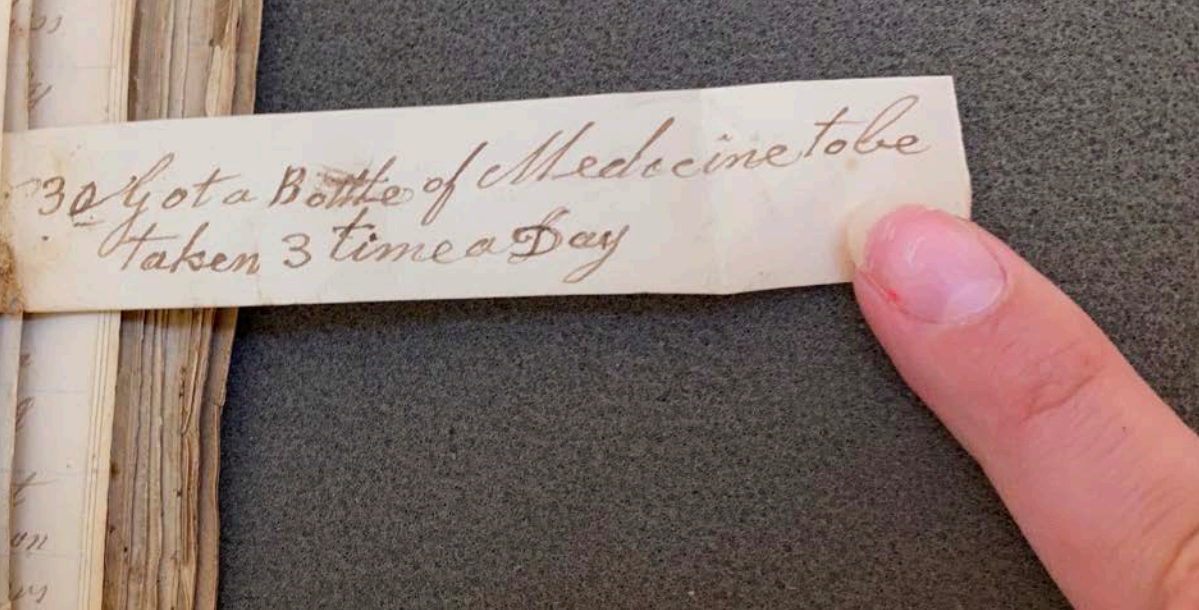 30 Got a Bottle of Medocine to be
taken 3 time a Day